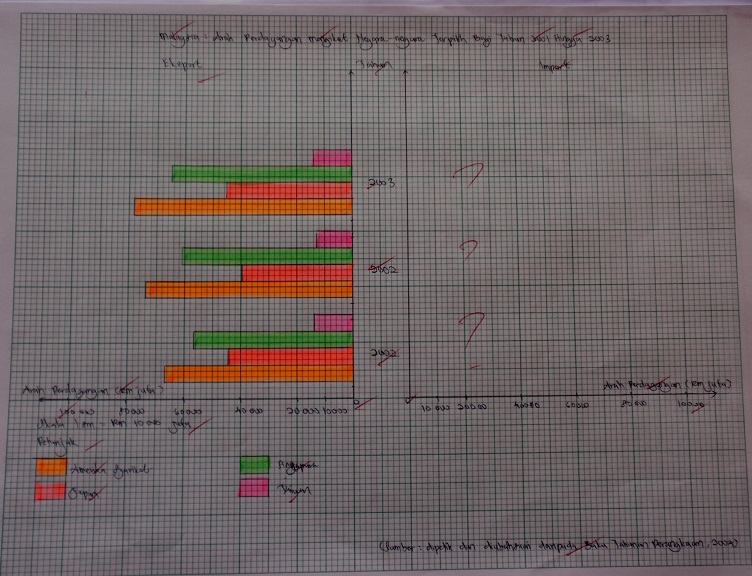 Malaysia: Arah Perdagangan mengikut Negara-negara Terpilih Bagi Tahun 2001 Hingga 2003
Eksport Tahun Import
2003
2002
2002
Arah Perdagangan (RM juta) Arah Perdagangan (RM juta)
100 000 80 000 60 000 40 000 20 000 10 000 0 0 10 000 20 000 40 000 60 000 80 000 100 000
Skala 1 cm = RM 10 000 juta
Petunjuk
Amerika Syarikat
Jepun
(Sumber: dipetik dan diubahsuai daripada Buku Tahunan Perangkaan, 2004)